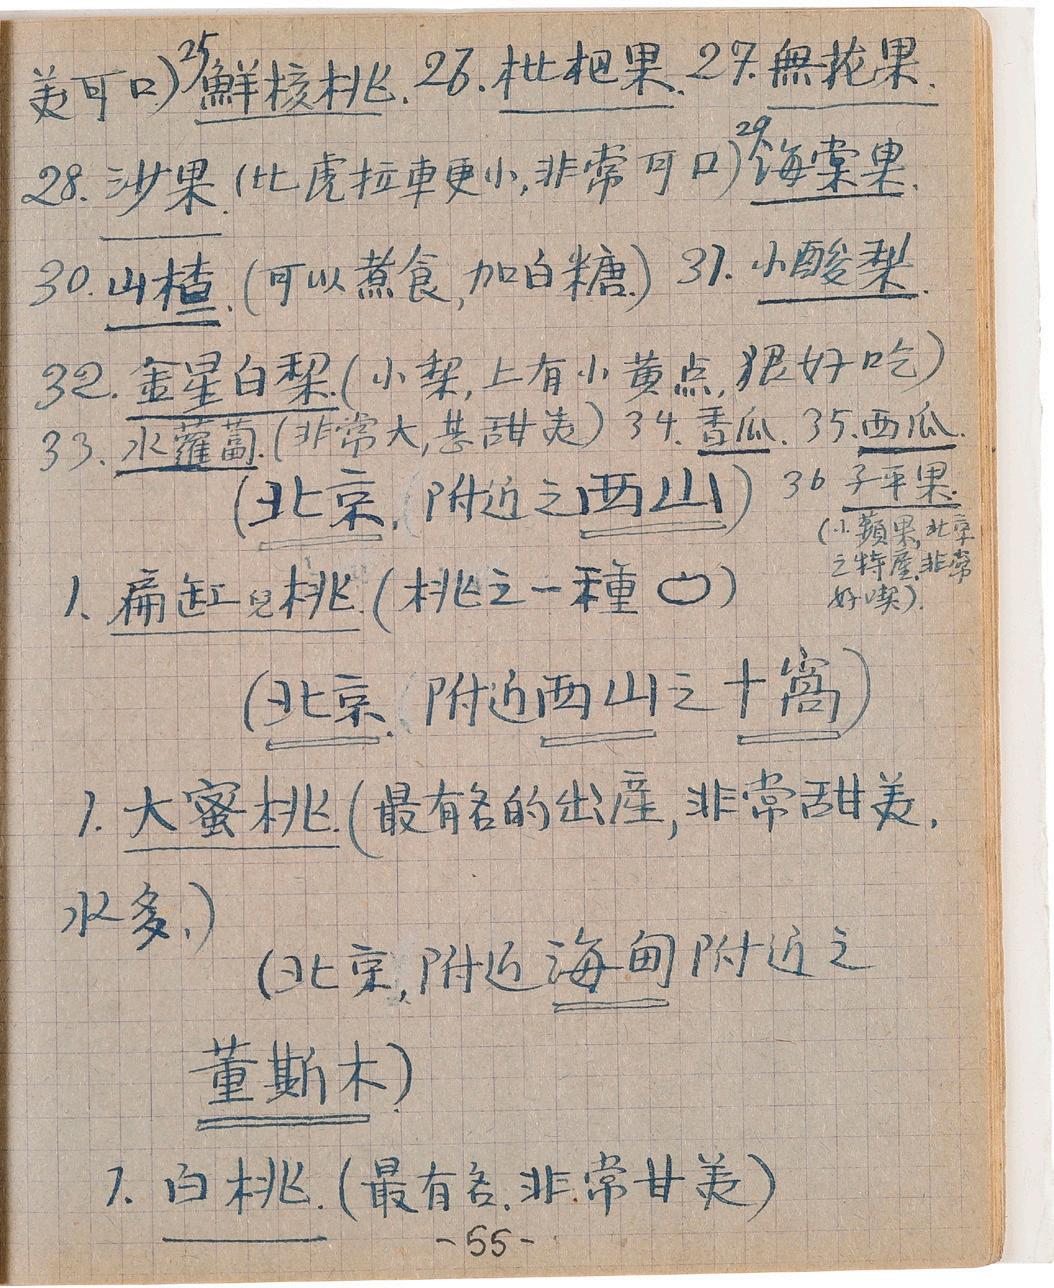 美可口)25鮮核桃. 26.枇杷果. 27.無花果.
28.沙果.(比虎拉車更小,非常可口)29海棠果.
30.山楂.(可以煮食,加白糖.) 31.小酸梨.
32.金星白梨.(小梨,上有小黄点,狠好吃)
33.水蘿蔔.(非常大,甚甜美) 34.香瓜. 35.西瓜.
(北京,(附近之西山) 36 子平果.
(小蘋果,北京
之特產,非常
好喫).
1.扁缸兒桃.(桃之一種)
(北京.(附近西山之十窩)
1.大蜜桃.(最有名的出産,非常甜美,
水多.)
(北京,附近海甸附近之
董斯木)
1.白桃.(最有名.非常甘美)
-55-